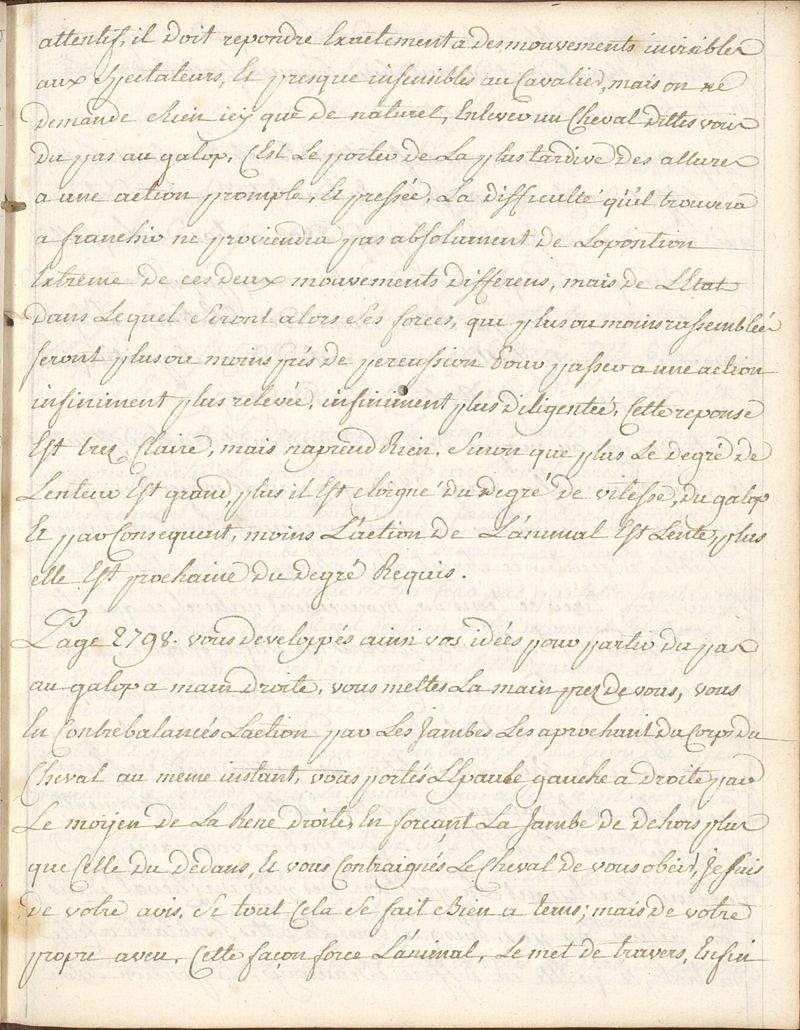 attentif, il doit repondre Exactement a des mouvements invisibles
aux Spectateurs, Et presque insensibles au Cavalier, mais on ne
demande Rien icy que de naturel, Enlever un Cheval dittes vous
du pas au galop, C'Est Le porter de La plus tardive des allures
a une action prompte, Et pressée, La difficulté qu'il trouvera
a franchir ne proviendra pas absolument de Loposition
Extrême de ces deux mouvements differens, mais de L'Etat
dans Lequel Seront alors Ses forces, que plus ou moins rassemblées
seront plus ou moins près de percussion pour passer a une action
infiniment plus relevée, infiniment plus diligentée, Cette reponse
Est trez Claire, mais n'aprend Rien, Sinon que plus Le degré de
Lenteur Est grand, plus il Est eloigné du degré de vitesse, du galop
Et par Consequent, moins L'action de L'animal Est Lente, plus
elle Est prochaine du degré Requis.
Page 2798. vous developpés ainsi vos idées pour partir du pas
au galop a main droite, vous mettes La main prez de vous, vous
En Contrebalancés Laction par Les Jambes Les aprochant du Corps du
Cheval au meme instant, vous portés L'Epaule gauche a droite par
Le moyen de La Rene droite, En forçant La Jambe de dehors plus
que Celle du dedans, Et vous Contraignés Le Cheval de vous obeir, Je suis
de votre avis, Si tout Cela Se fait Bien a tems; mais de votre
propre aveu, Cette façon force L'animal, Le met de travers, Enfin